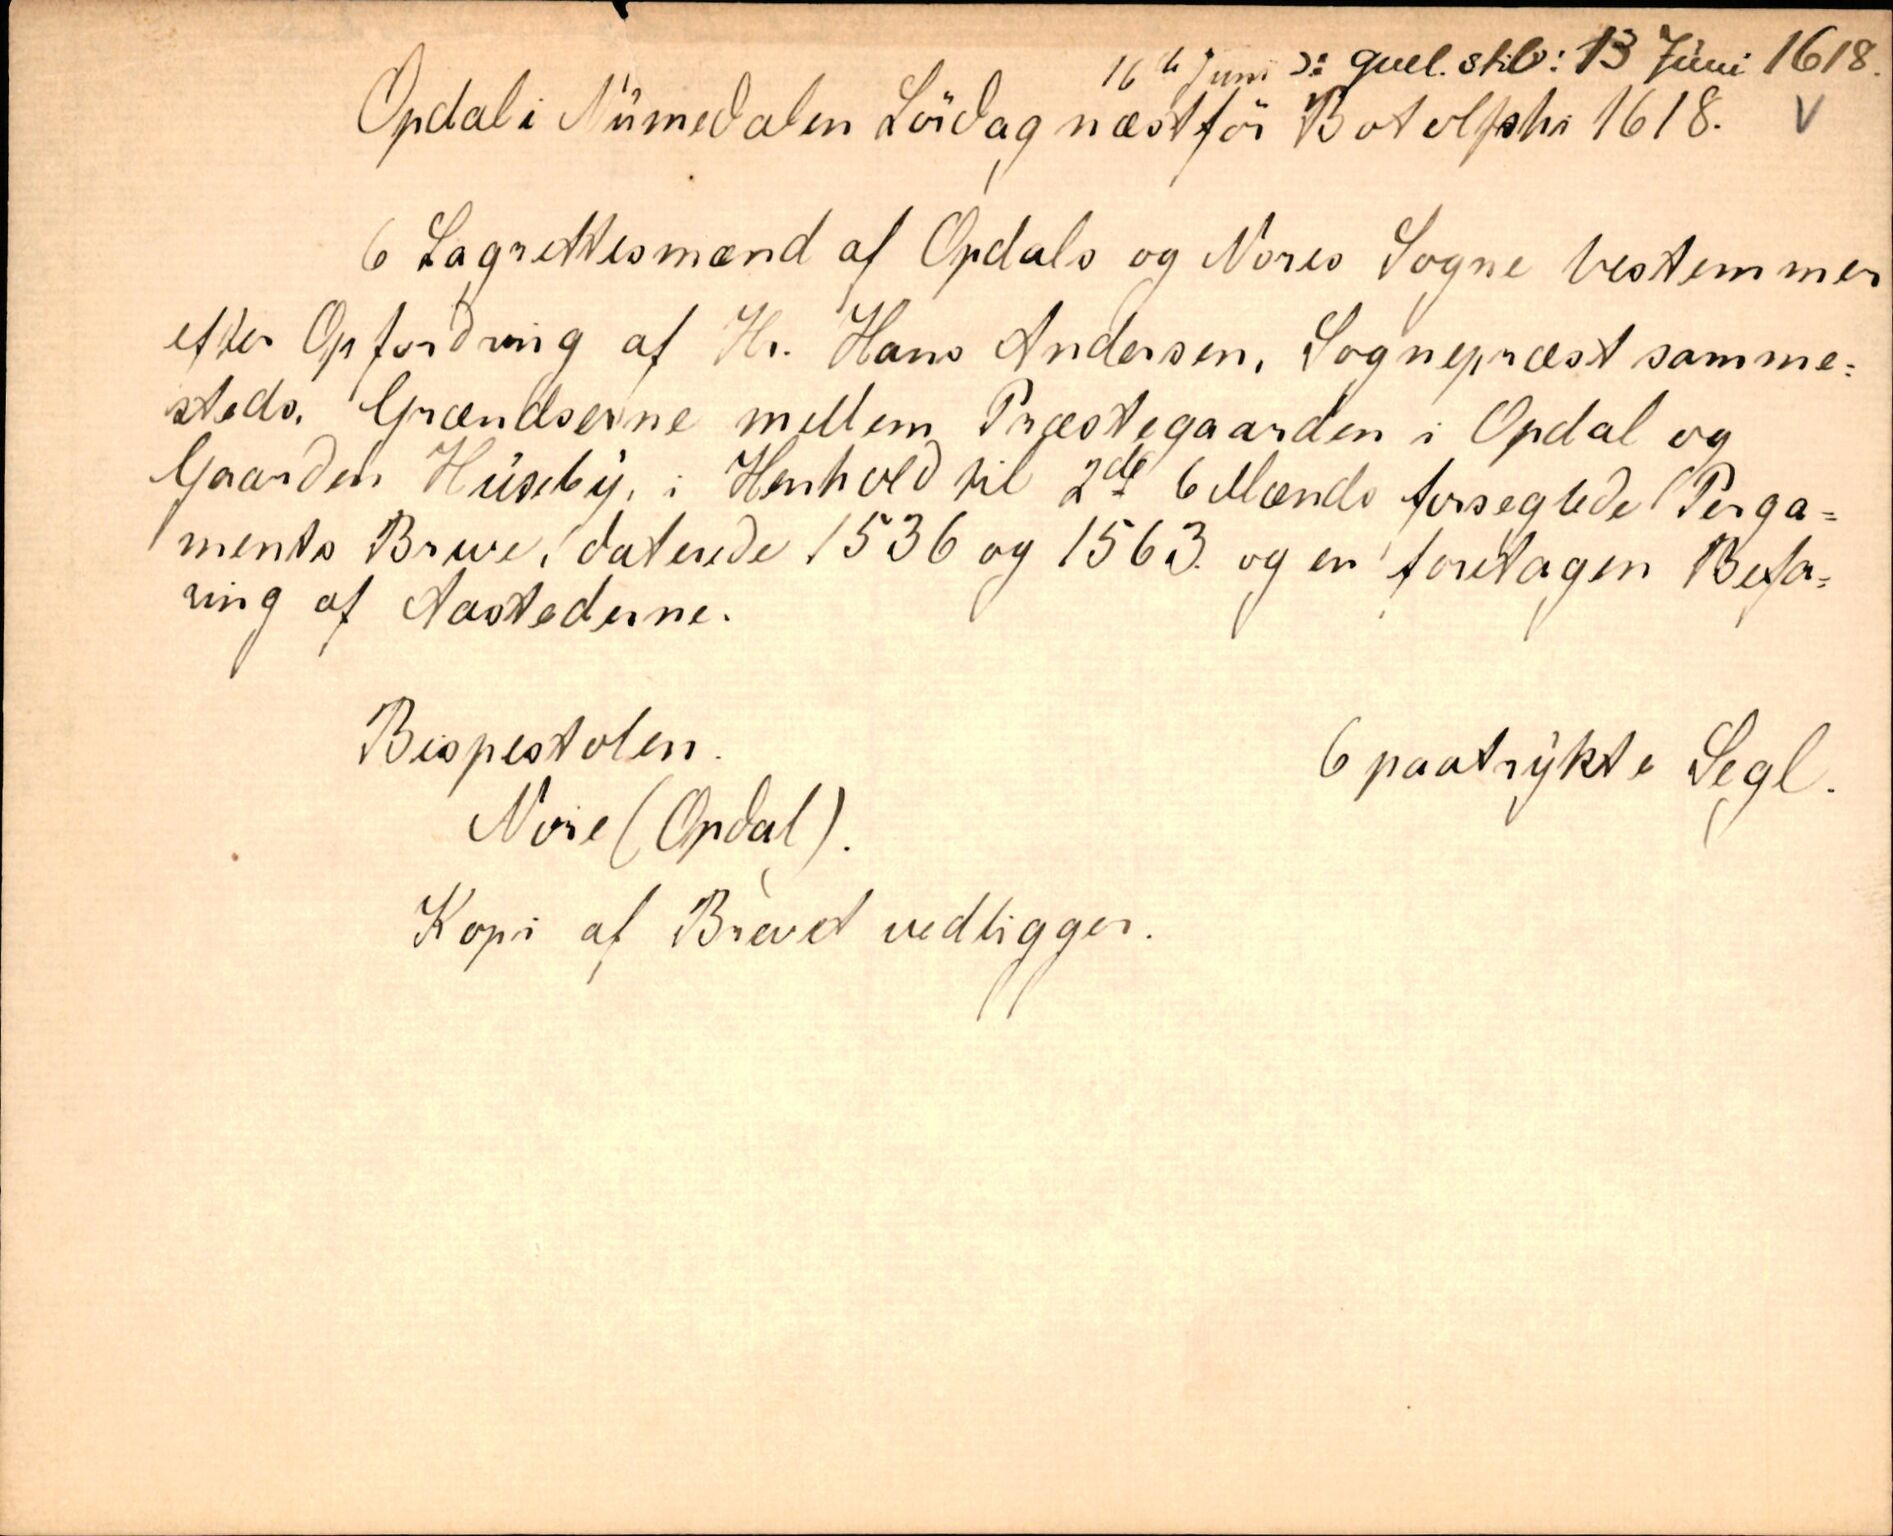 16de Juni ɔ: guel. stil: 13 Juni 1618.
Opdal i Númedalen Lördag næstför Botolphi 1618. V
6 Lagrettesmænd af Opdals og Nores Sogne bestemmer
efter Opfordring af Hr. Hans Andersen, Sognepræst samme=
steds, Grændserne mellem Præstegaarden i Opdal og
Gaarden Húseby, i Henhold til 2de 6 Mænds forseglede Perga=
ments Breve, daterede 1536 og 1563. og en foretagen Befa=
ring af Aastederne.
Bispestolen.
6 paatrykte Segl.
Nore (Opdal).
Kopi af Brevet vedligger.